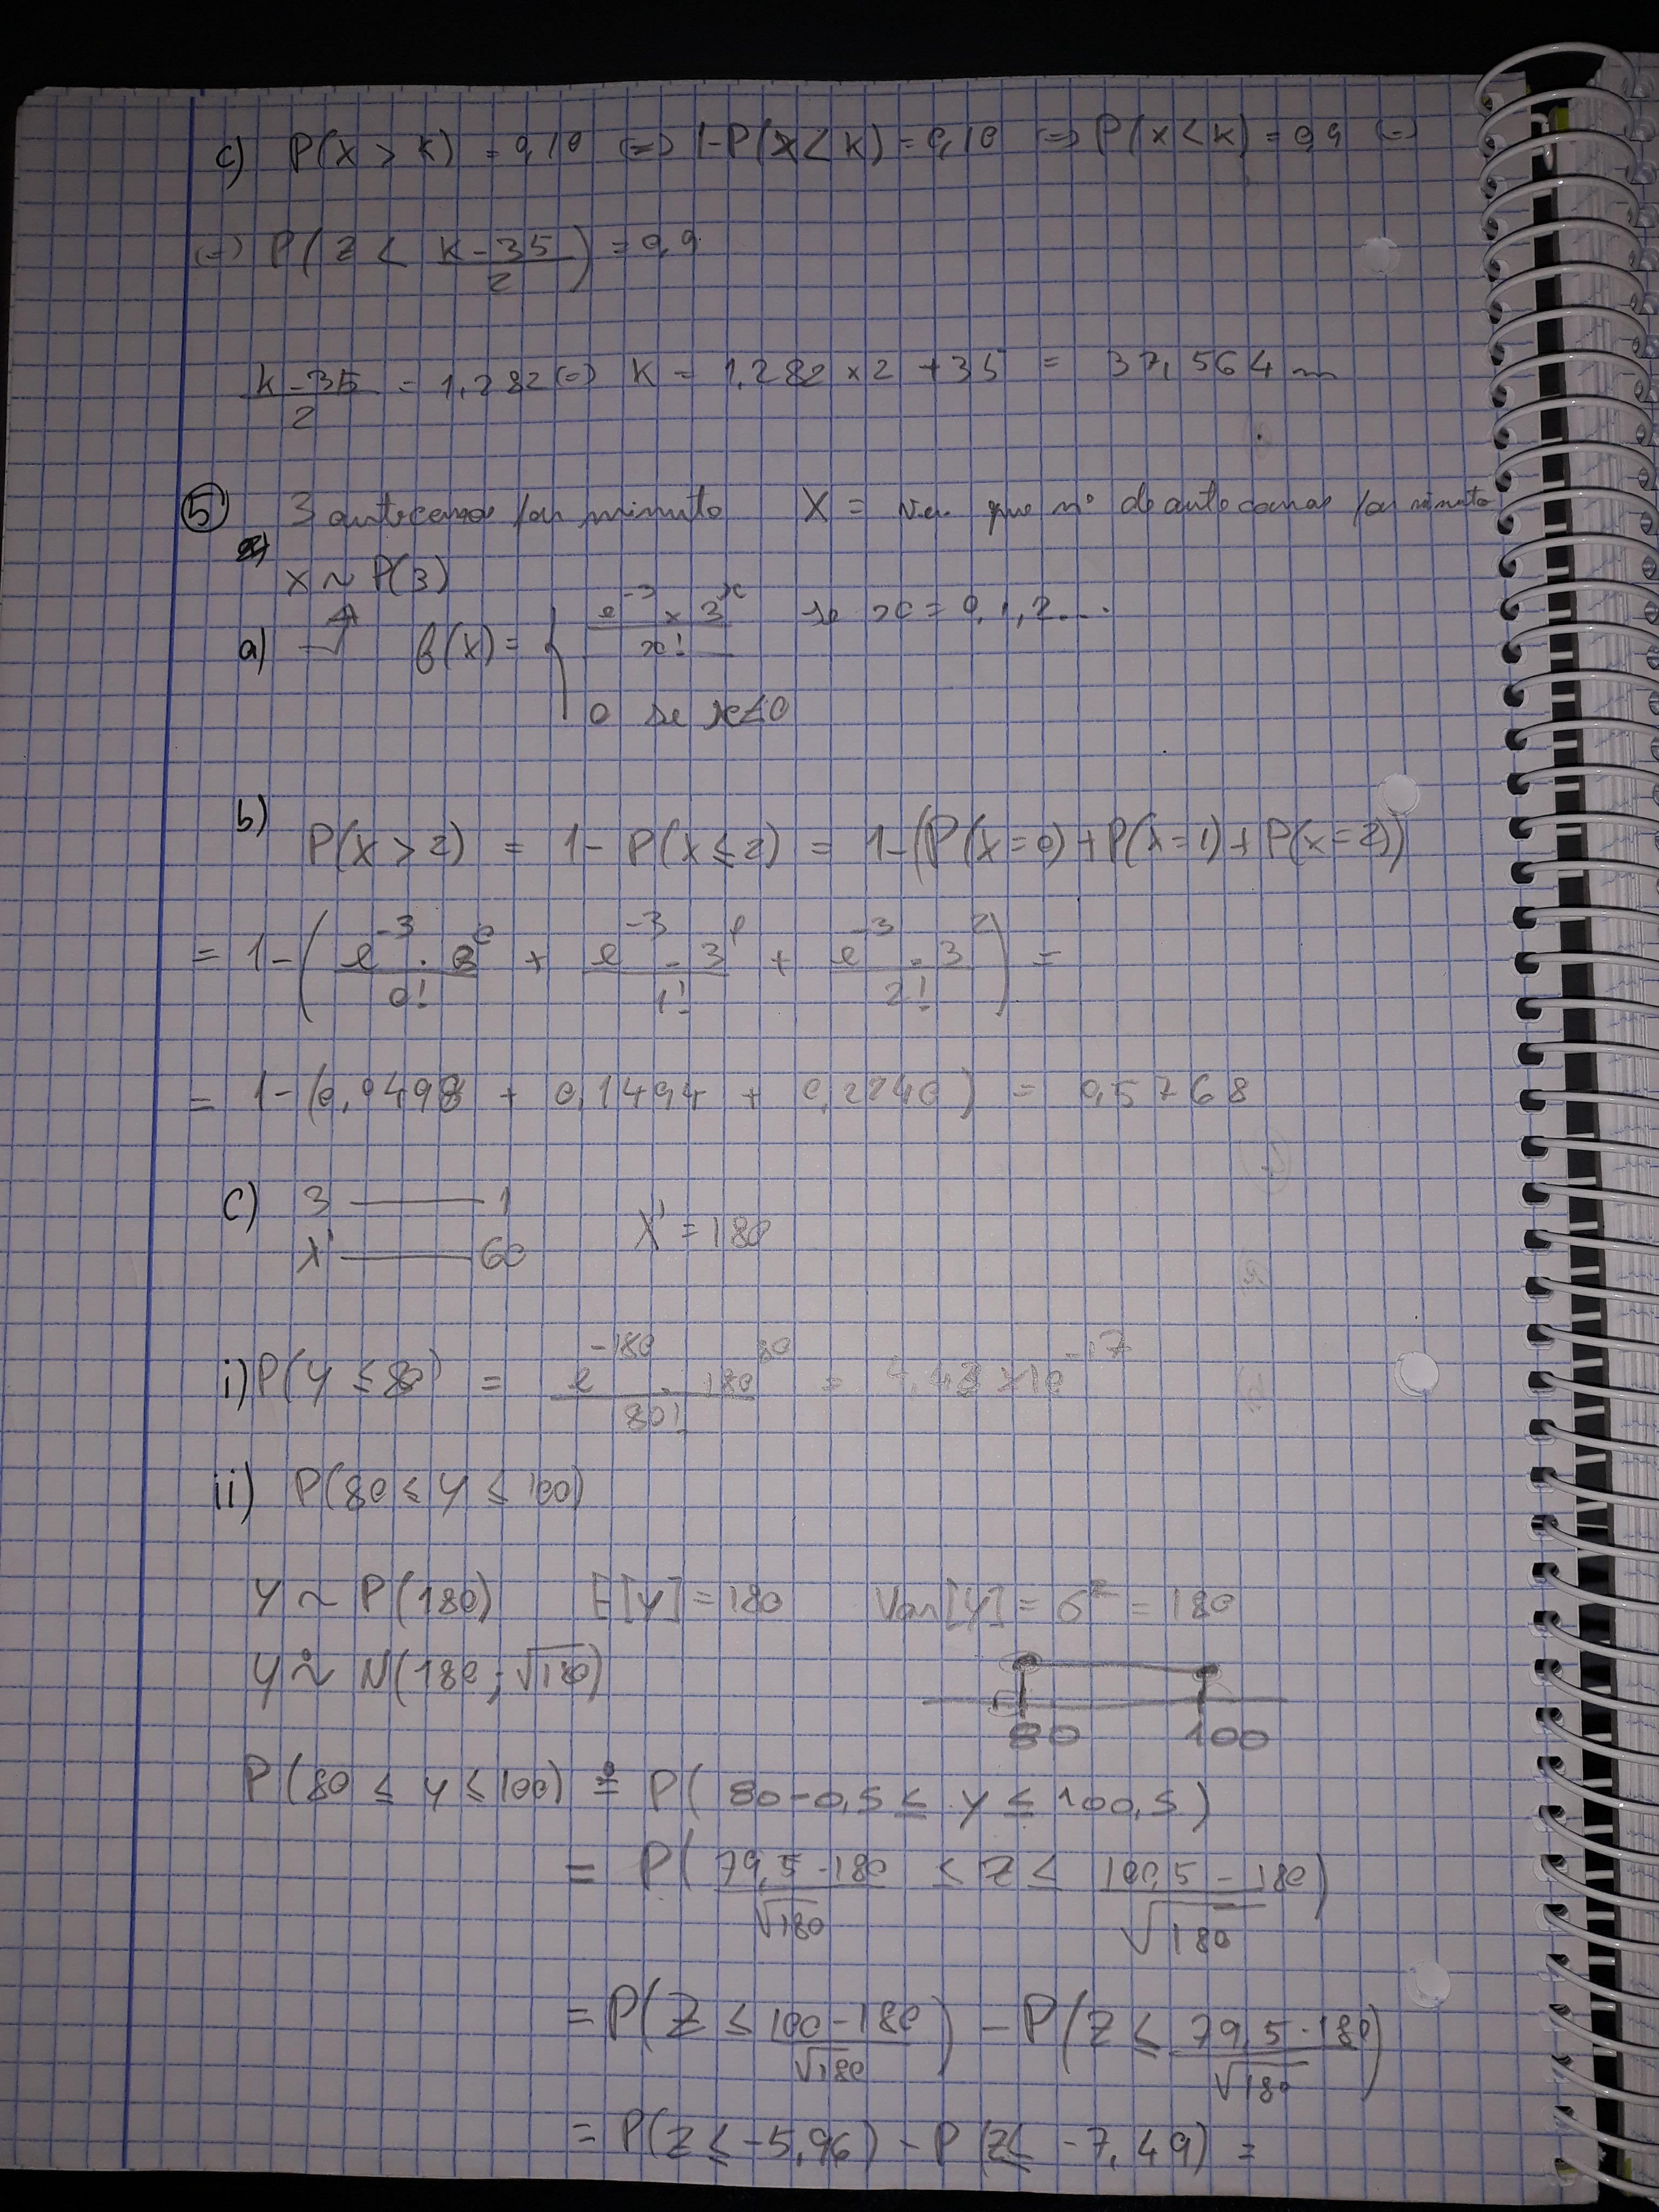 c) P(X > k) = 0,10 (=) 1-P(X < k) = 0,10 (=) P(X < k) = 0,9 (=)
(=) P(Z < (k - 35)/2) = 0,9
(k - 35)/2 = 1,282 (=) k = 1,282 × 2 + 35 = 37,564 m
⑤ 3 autocarros por minuto X = v.a. que nº de autocarros por minuto
X ~ P(3)
a) f(x) = { (e^-3 × 3^x)/x! se x = 0,1,2...
0 se x<0
b) P(X > 2) = 1 - P(X ≤ 2) = 1-(P(X=0) + P(X=1) + P(X=2))
= 1-( (e^-3 · 3^0)/0! + (e^-3 · 3^1)/1! + (e^-3 · 3^2)/2! ) =
= 1-(0,0498 + 0,1494 + 0,2240) = 0,5768
c) 3 —— 1
λ' —— 60 λ' = 180
i) P(Y ≤ 80) = (e^-180 · 180^80)/80! = 4,43 × 10^-17
ii) P(80 ≤ Y ≤ 100)
Y ~ P(180) E[Y] = 180 Var[Y] = σ² = 180
Y ~ N(180; √180)
80 100
P(80 ≤ Y ≤ 100) = P(80-0,5 ≤ Y ≤ 100,5)
= P( (79,5-180)/√180 ≤ Z ≤ (100,5-180)/√180 )
= P(Z ≤ (100-180)/√180) - P(Z ≤ (79,5-180)/√180)
= P(Z ≤ -5,96) - P(Z ≤ -7,49) =